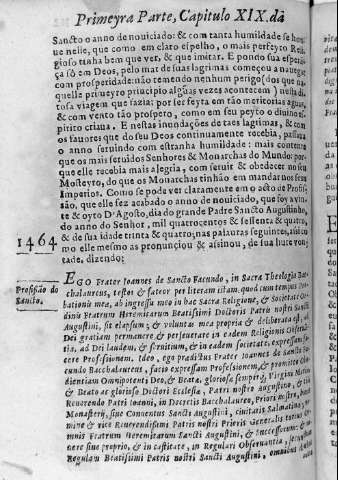 Primeyra Parte, Capitulo XIX. da
Sancto o anno de nouiciado: & com tanta humildade se hou-
ue nelle, que como em claro espelho, o mais perfeyto Reli-
gioso tinha bem que ver, & que imitar. E pondo sua esperã-
ça só em Deos, pelo mar de suas lagrimas começou a nauegar
com prosperidade: não temendo nenhum perigo (dos que na-
quelle primeyro principio algũas vezes acontecem) nesta di-
tosa viagem que fazia; por ser feyta em tão meritorias agoas,
& com vento tão prospero, como em seu peyto o diuino es-
pirito criaua. E nestas inundações de taes lagrimas, & com
os fauores que do seu Deos continuamente recebia, passaua
o anno seruindo com estranha humildade: mais contente
que os mais seruidos Senhores & Monarchas do Mundo: por-
que elle recebia mais alegria, com seruir & obedecer no seu
Mosteyro, do que os Monarchas tinhão em mandar nos seus
Imperios. Como se pode ver claramente em o acto de Profis-
são, que elle fez acabado o anno de nouiciado, que foy a vin-
te & oyto D'Agosto, dia do grande Padre Sancto Augustinho,
do anno do Senhor, mil quatrocentos & sessenta & quatro,
1464
& de sua idade trinta & quatro; nas palauras seguintes, assi co-
mo elle mesmo as pronunciou & assinou, de sua liure von-
tade, dizendo:
Profissão do
Sancto.
EGO Frater Ioannes de Sancto Facundo, in Sacra Theologia Bac-
chalaureus, testor & fateor per literam istam. quod cum tempus pro-
bationis meæ, ab ingressu meo in hac Sacra Religione, & Societate Or-
dinis Fratrum Heremitarum Beatissimi Doctoris Patris nostri Sancti
Augustini, sit elapsum; & voluntas mea propria & deliberata est, ad
Dei gratiam permanere & perseuerare in eadem Religionis Obseruan-
tia, ad Dei laudem, & seruitium, & in eadem societate, expressam fa-
cere Professionem. Ideo, ego prædictus Frater Ioannes de Sancto Fa-
cundo Bacchalaureus, facio expressam Professionem, & promitto Obe-
dientiam Omnipotenti Deo, & Beatæ, gloriosæ semper Virgini Mariæ
& Beato ac glorioso Doctori Ecclesiæ, Patri nostro Augustino, & tibi
Reuerendo Patri Ioanni, in Decretis Bacchalaureo, Priori nostro, huius
Monasterij, siue Conuentus Sancti Augustini, ciuitatis Salmantinæ, no-
mine & vice Reuerendissimi Patris nostri Prioris Generalis totius Or-
dinis Fratrum Heremitarum Sancti Augustini, & Successorum: &
nere sine proprio, & in castitate, in Regulari Obseruantia,
Regulam Beatissimi Patris nostri Sancti Augustini,